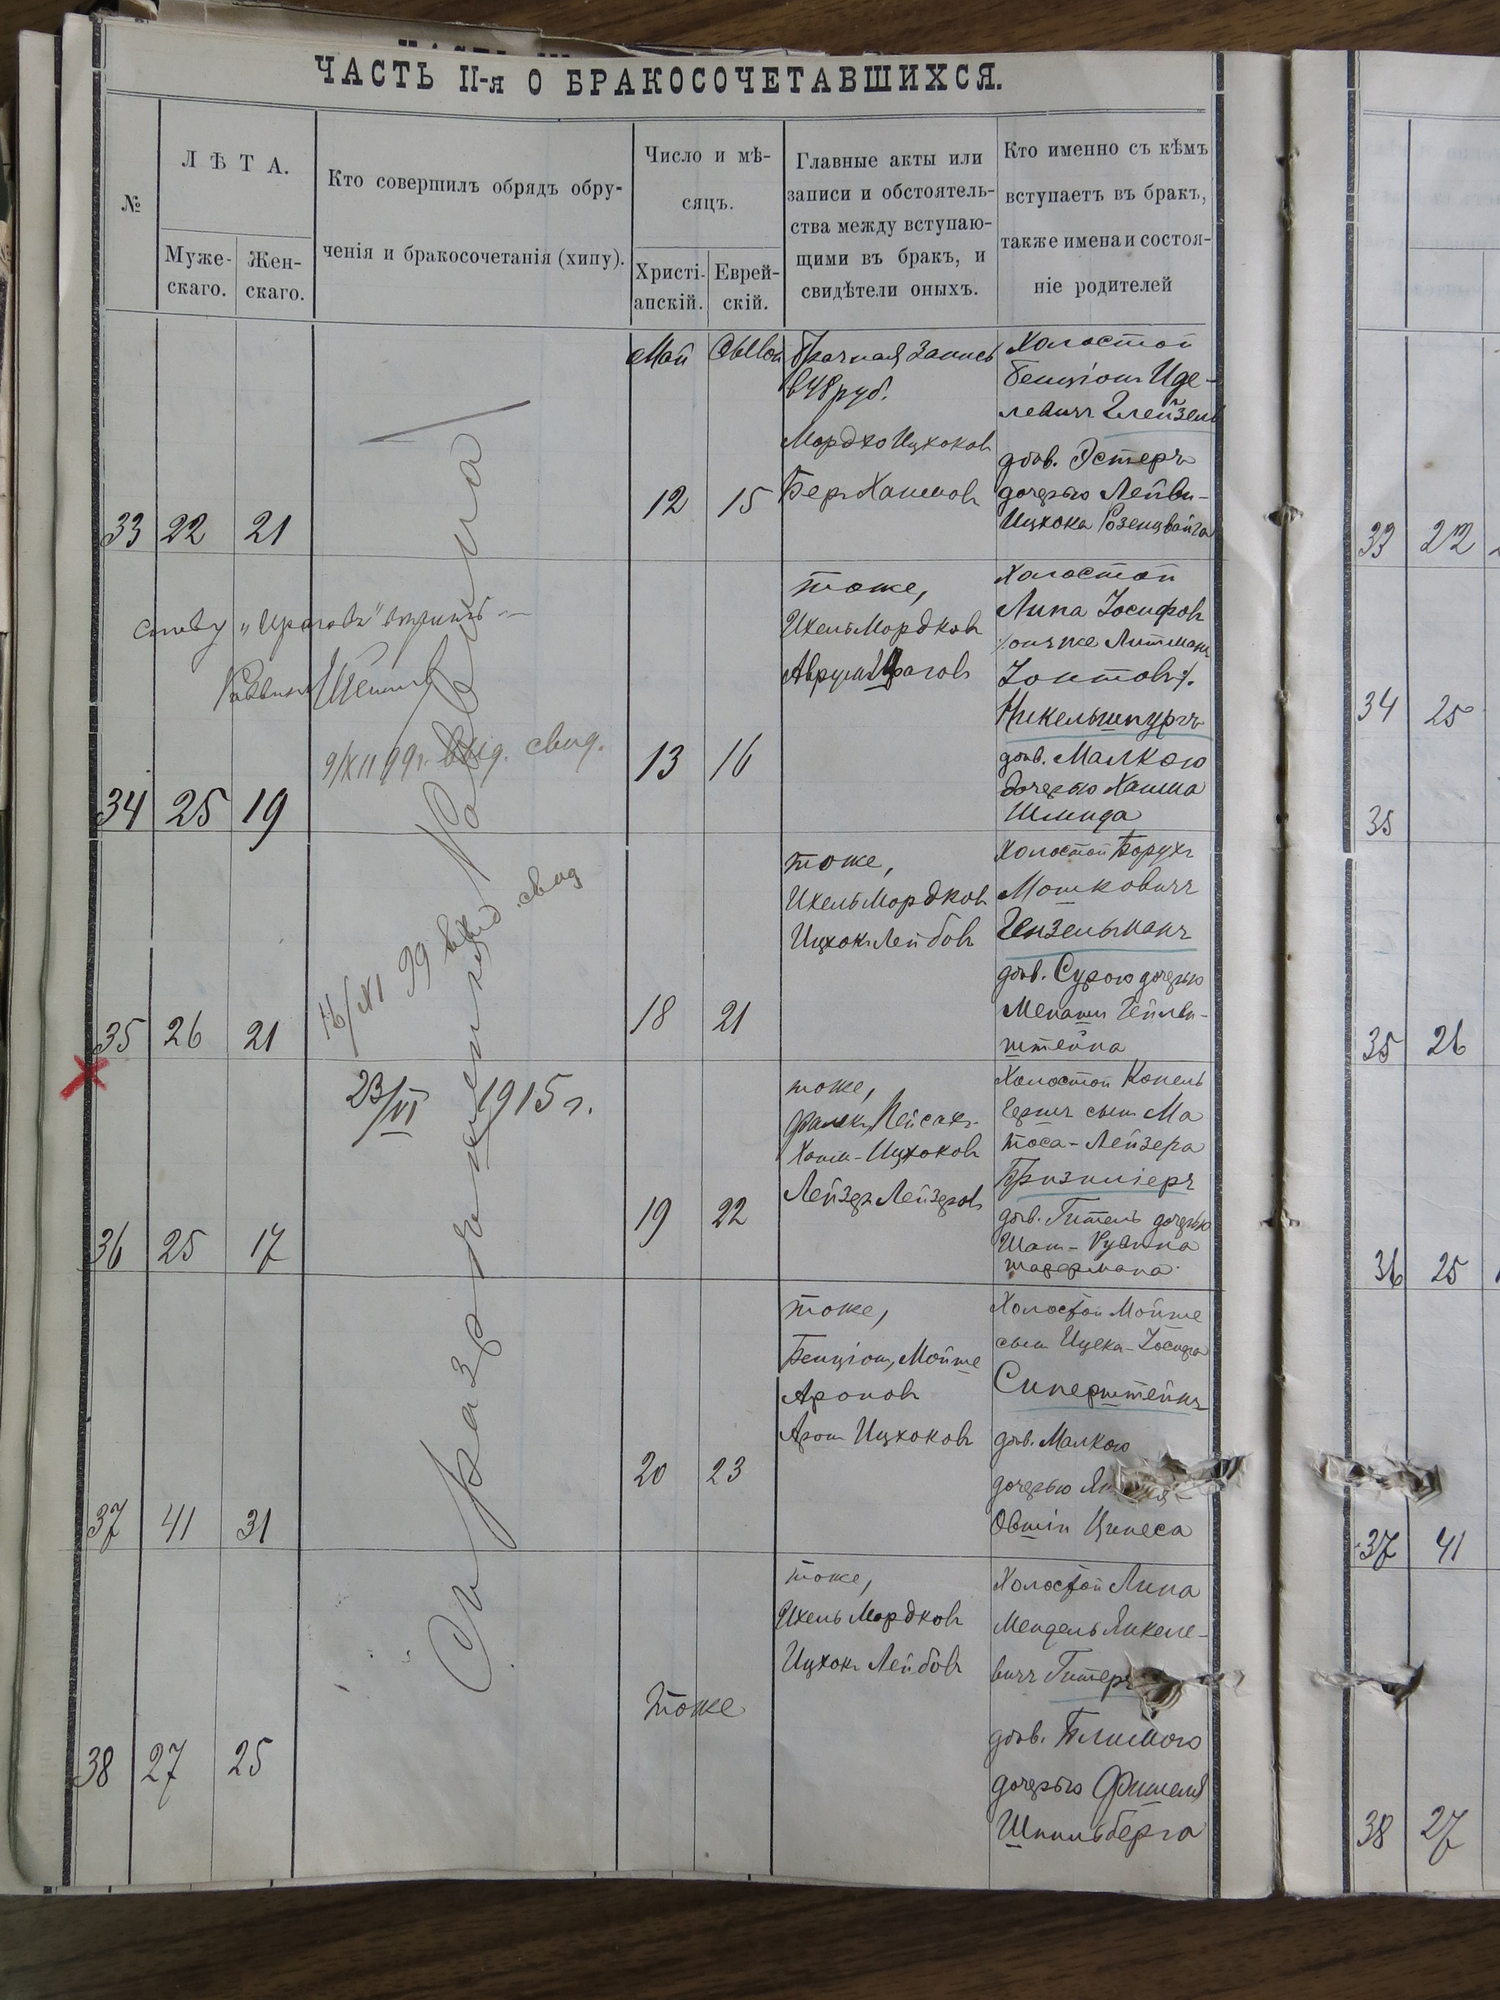 ЧАСТЬ II-я О БРАКОСОЧЕТАВШИХСЯ.
№
ЛѢТА.
Муже-
скаго.
Жен-
скаго.
Кто совершилъ обрядъ обру-
ченія и бракосочетанія (хипу).
Число и мѣ-
сяцъ.
Христі-
анскій.
Еврей-
скій.
Главные акты или
записи и обстоятель-
ства между вступаю-
щими въ бракъ, и
свидѣтели оныхъ.
Кто именно съ кѣмъ
вступаетъ въ бракъ,
также имена и состоя-
ніе родителей
33 22 21
Май
12 15
Брачная запись
в 48 руб.
Мордхо Ицхоковъ
Беръ Хаимовъ
Холостой
Бенціонъ Иде-
левичъ Глейзель
дѣв. Эстеръ
дочерью Лейви-
Ицхока Розенцвайга
слову „Ираговъ" вѣрить
Раввинъ
9/XII 99 г. выд. свид.
34 25 19
13 16
тоже,
Ихель Мордковъ
Аврумъ Ираговъ
Холостой
Липа Іосифовъ
/онъ же Литманъ
Іонтовъ/.
Никельшпургъ
дѣв. Малкою
дочерью Хаима
Шмида
16/XI 99 выд. свид
35 26 21
18 21
тоже,
Ихель Мордковъ
Ицхокъ Лейбовъ
Холостой Борухъ
Мошковичъ
Гензельманъ
дѣв. Сурою дочерью
Менаши
штейна
23/VI 1915 г.
36 25 17
19 22
тоже,
Пейсахъ
Хаим-Ицхоковъ
Лейзеръ Лейзеровъ
Холостой Копель
Гершъ сынъ Ма
тоса-Лейзера
Бризмліеръ
дѣв. Гитель дочерью
Шаи-Рувина
37 41 31
20 23
тоже,
Бенціонъ, Мойше
Ароновъ
Аронъ Ицхоковъ
Холостой Мойше
сынъ Ицека-Іосифа
Сиперштейнъ
дѣв. Малкою
дочерью
Овшія Ципеса
38 27 25
тоже
тоже,
Ихель Мордковъ
Ицхокъ Лейбовъ
Холостой Липа
Мендель Янкеле-
вичъ Гитеръ
дѣв. Блимою
дочерью Фишеля
Шпильберга
33 22
34 25
35
35 26
36 25
37 41
38 27